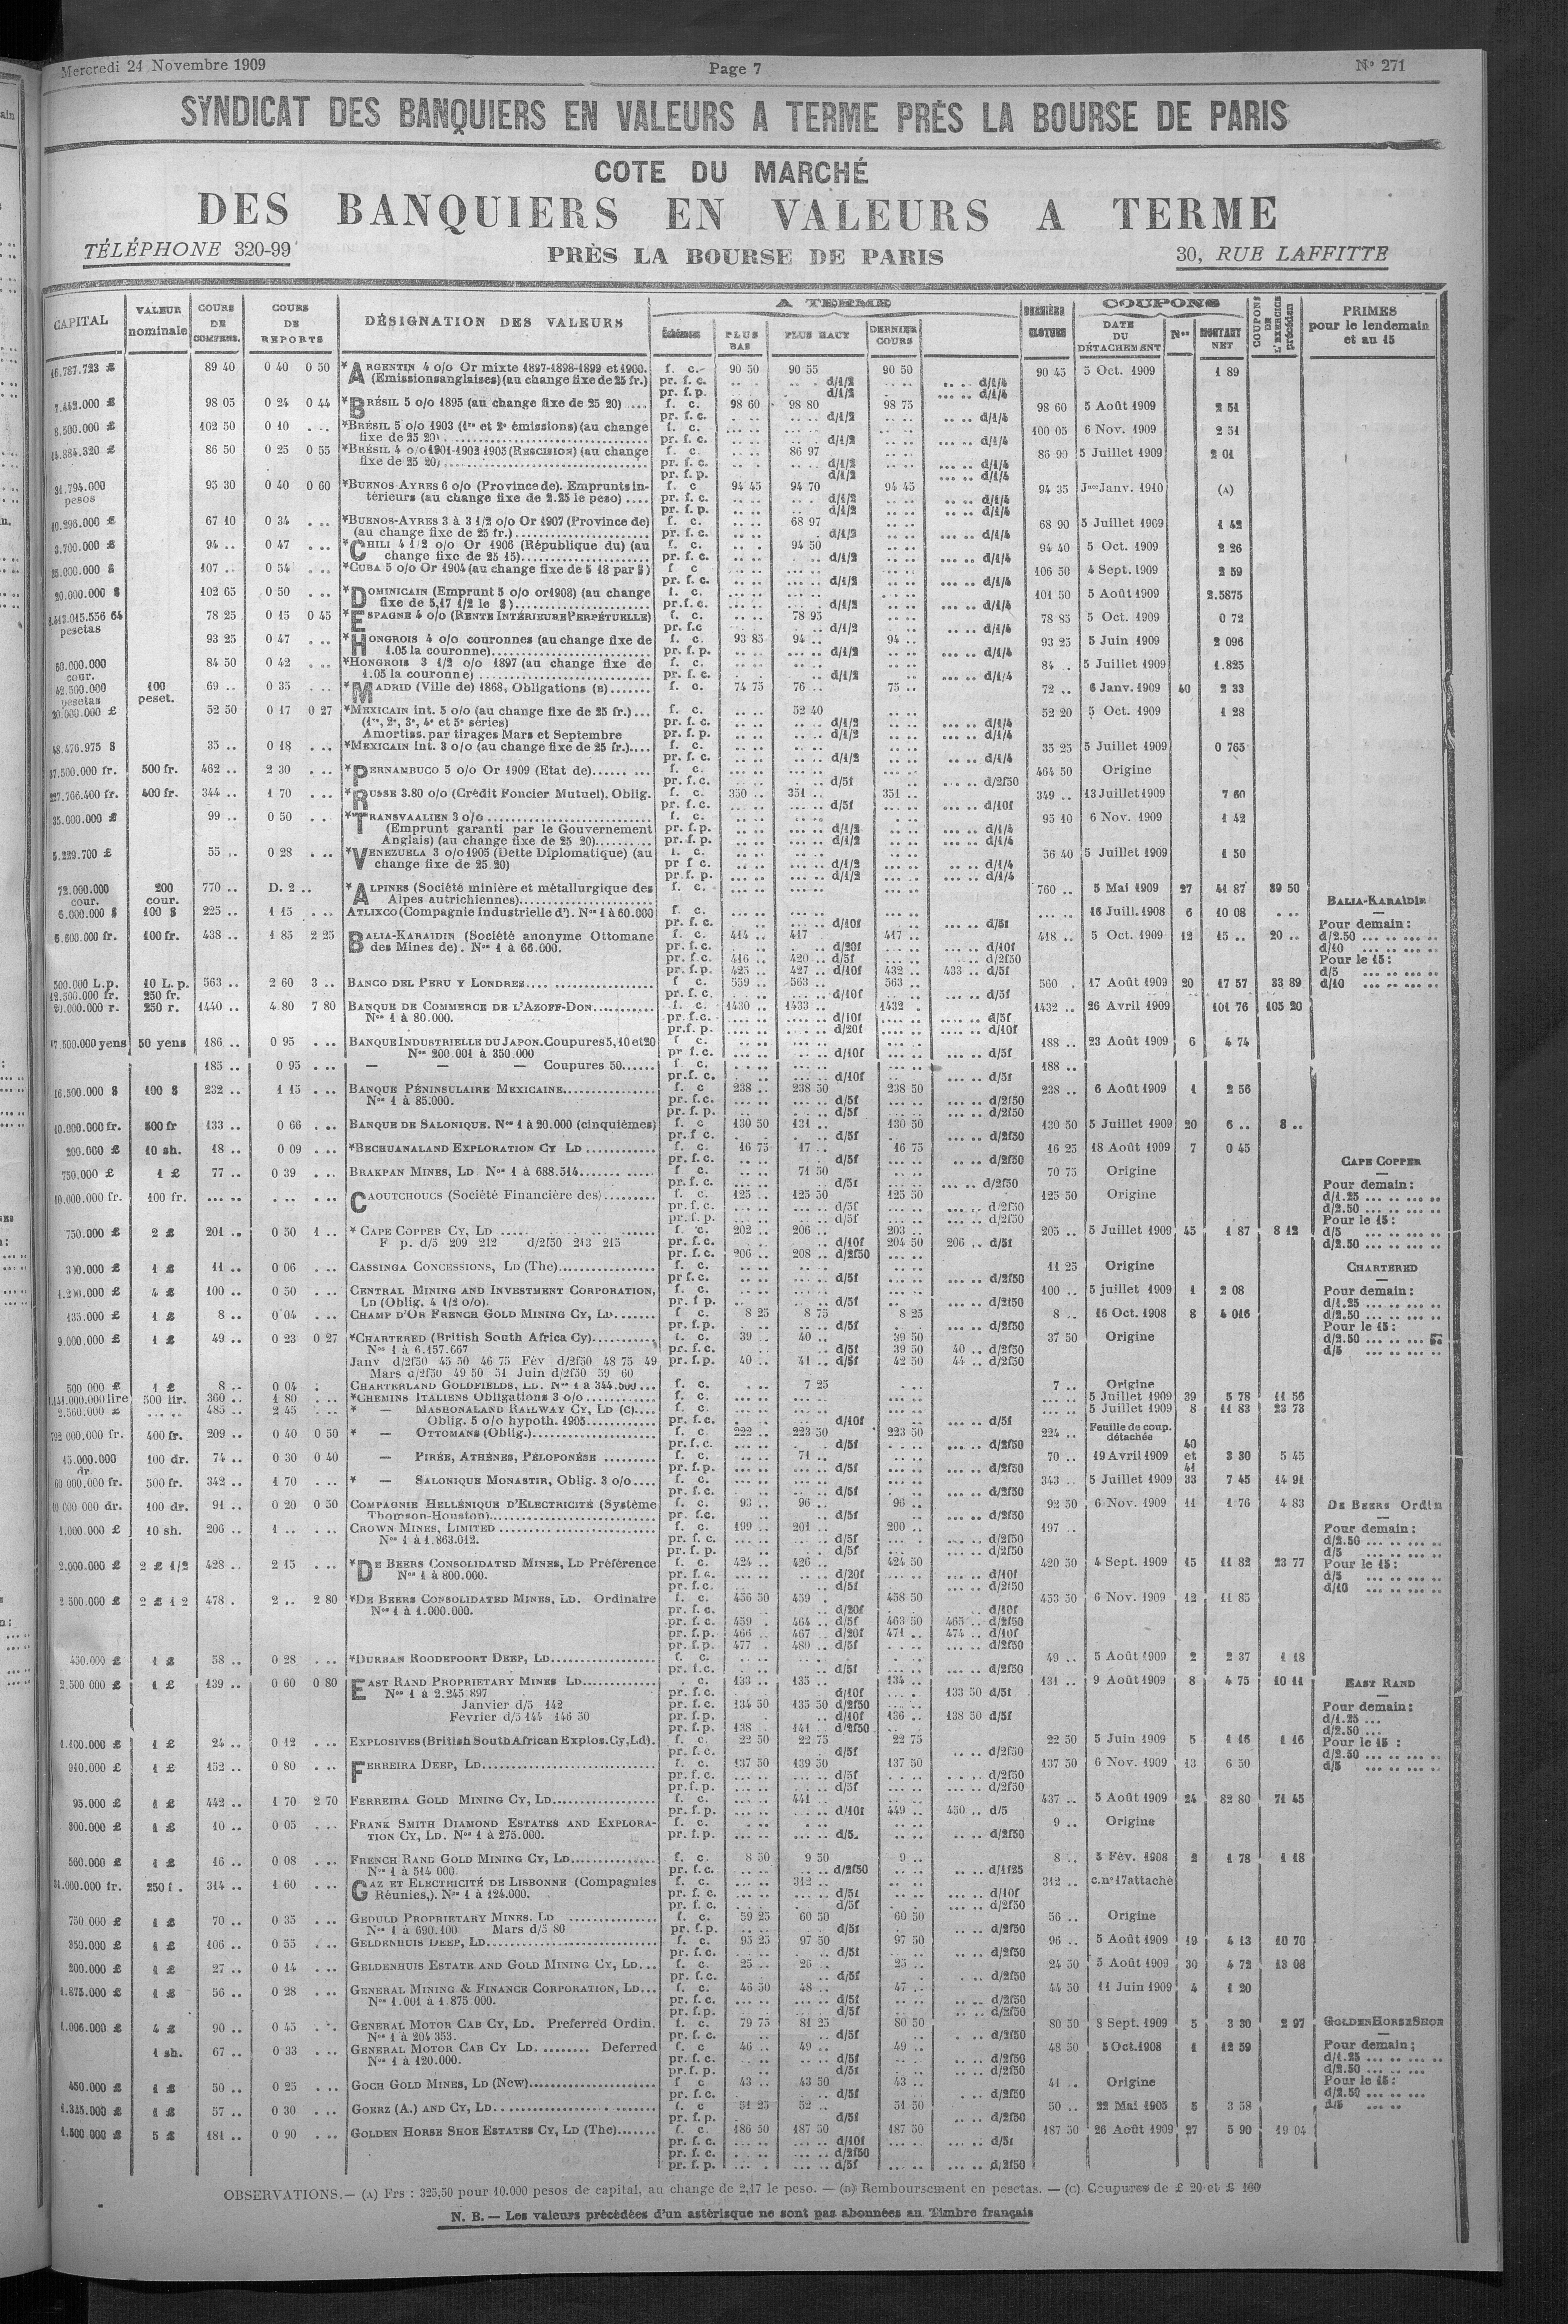 Mercredi 24 Novembre 1909
Page 7
N° 271
SYNDICAT DES BANQUIERS EN VALEURS A TERME PRÈS LA BOURSE DE PARIS
COTE DU MARCHÉ
DES BANQUIERS EN VALEURS A TERME
TÉLÉPHONE 320-99
PRÈS LA BOURSE DE PARIS
30, RUE LAFFITTE
CAPITAL VALEUR nominale COURS DE COMPENS. COURS DE REPORTS DÉSIGNATION DES VALEURS A TERME Échéances PLUS BAS PLUS HAUT DERNIER COURS DERNIÈRE CLOTURE COUPONS DATE DU DÉTACHEMENT Nos MONTANT NET COUPONS DE L'EXERCICE précédent PRIMES pour le lendemain et au 15
16.787.723 £ 89 40 0 40 0 50 *ARGENTIN 4 o/o Or mixte 1897-1898-1899 et 1900. f. c. 90 50 90 55 90 50 90 45 5 Oct. 1909 1 89
(Emissions anglaises) (au change fixe de 25 fr.) pr. f. c. d/1/2 d/1/4
pr. f. p. d/1/2 d/1/4
7.442.000 £ 98 05 0 24 0 44 *BRÉSIL 5 o/o 1895 (au change fixe de 25 20) f. c. 98 60 98 80 98 75 98 60 5 Août 1909 2 51
8.500.000 £ 102 50 0 10 *BRÉSIL 5 o/o 1903 (1re et 2e émissions) (au change fixe de 25 20) f. c. 100 05 6 Nov. 1909 2 51
14.884.320 £ 86 50 0 25 0 55 *BRÉSIL 4 o/o 1901-1902 1905 (RESCISION) (au change fixe de 25 20) f. c. 86 97 86 90 5 Juillet 1909 2 01
31.794.000 pesos 95 30 0 40 0 60 *BUENOS-AYRES 6 o/o (Province de). Emprunts intérieurs (au change fixe de 2.25 le peso) f. c. 94 45 94 70 94 45 94 35 Jce Janv. 1910 (A)
10.296.000 £ 67 10 0 34 *BUENOS-AYRES 3 à 3 1/2 o/o Or 1907 (Province de) (au change fixe de 25 fr.) f. c. 68 97 68 90 5 Juillet 1909 1 42
3.700.000 £ 94 .. 0 47 *CHILI 4 1/2 o/o Or 1906 (République du) (au change fixe de 25 15) f. c. 94 50 94 40 5 Oct. 1909 2 26
35.000.000 $ 107 .. 0 54 *CUBA 5 o/o Or 1904 (au change fixe de 5 18 par $) f. c. 106 50 4 Sept. 1909 2 59
20.000.000 $ 102 65 0 50 *DOMINICAIN (Emprunt 5 o/o or 1908) (au change fixe de 5,17 1/2 le $) f. c. 101 50 5 Août 1909 2.5875
pesetas 78 25 0 15 0 45 *ESPAGNE 4 o/o (RENTE INTÉRIEURE PERPÉTUELLE) f. c. 78 95 78 85 5 Oct. 1909 0 72
93 25 0 47 *HONGROIS 4 o/o couronnes (au change fixe de 1.05 la couronne) f. c. 93 85 94 .. 94 .. 93 25 5 Juin 1909 2 096
60.000.000 cour. 84 50 0 42 *HONGROIS 3 1/2 o/o 1897 (au change fixe de 1.05 la couronne) f. c. 84 .. 5 Juillet 1909 1.825
42.500.000 pesetas 100 peset. 69 .. 0 35 *MADRID (Ville de) 1868, Obligations (B) f. c. 74 75 76 .. 75 .. 72 .. 6 Janv. 1909 40 2 33
20.000.000 £ 52 50 0 17 0 27 *MEXICAIN int. 5 o/o (au change fixe de 25 fr.) f. c. 52 40 52 20 5 Oct. 1909 1 28
(1re, 2e, 3e, 4e et 5e séries)
Amortiss. par tirages Mars et Septembre
48.476.975 $ 35 .. 0 18 *MEXICAIN int. 3 o/o (au change fixe de 25 fr.) f. c. 35 25 5 Juillet 1909 0 765
37.500.000 fr. 500 fr. 462 .. 2 30 *PERNAMBUCO 5 o/o Or 1909 (Etat de) f. c. d/5f d/2f50 464 50 Origine
227.766.400 fr. 400 fr. 344 .. 1 70 *RUSSE 3.80 o/o (Crédit Foncier Mutuel). Oblig. f. c. 350 .. 351 .. 351 .. 349 .. 13 Juillet 1909 7 60
35.000.000 £ 99 .. 0 50 *TRANSVAALIEN 3 o/o f. c. 95 10 6 Nov. 1909 1 42
(Emprunt garanti par le Gouvernement Anglais) (au change fixe de 25 20)
5.229.700 £ 55 .. 0 28 *VENEZUELA 3 o/o 1905 (Dette Diplomatique) (au change fixe de 25.20) f. c. 56 40 5 Juillet 1909 1 50
72.000.000 cour. 200 cour. 770 .. D. 2 .. *ALPINES (Société minière et métallurgique des Alpes autrichiennes) f. c. 760 .. 5 Mai 1909 27 41 87 39 50
6.000.000 $ 100 $ 225 .. 1 15 ATLIXCO (Compagnie Industrielle d'). Nos 1 à 60.000 f. c. d/10f d/5f 16 Juill. 1908 6 10 08
6.600.000 fr. 100 fr. 438 .. 1 85 2 25 BALIA-KARAÏDIN (Société anonyme Ottomane des Mines de). Nos 1 à 66.000. f. c. 414 .. 417 417 .. 418 .. 5 Oct. 1909 12 15 .. 20 ..
pr. f. c. d/20f d/10f
pr. f. c. 416 .. 420 .. d/5f d/2f50
pr. f. p. 425 427 .. d/10f 432 .. 433 .. d/5f
500.000 L.p. 10 L. p. 563 .. 2 60 3 .. BANCO DEL PERU Y LONDRES f. c. 559 563 563 560 17 Août 1909 20 17 57 33 89
12.500.000 fr. 250 fr.
20.000.000 r. 250 r. 1440 .. 4 80 7 80 BANQUE DE COMMERCE DE L'AZOFF-DON f. c. 1430 .. 1433 .. 1432 1432 .. 26 Avril 1909 101 76 105 20
Nos 1 à 80.000.
17.500.000 yens 50 yens 186 .. 0 95 BANQUE INDUSTRIELLE DU JAPON. Coupures 5, 10 et 20 188 .. 23 Août 1909 6 4 74
Nos 200.001 à 350.000
185 .. 0 95 — — — Coupures 50 188 ..
16.500.000 $ 100 $ 232 .. 1 15 BANQUE PÉNINSULAIRE MEXICAINE f. c. 238 .. 238 50 238 50 238 .. 6 Août 1909 1 2 56
Nos 1 à 85.000.
10.000.000 fr. 500 fr 133 .. 0 66 BANQUE DE SALONIQUE. Nos 1 à 20.000 (cinquièmes) f. c. 130 50 131 .. 130 50 130 50 5 Juillet 1909 20 6 .. 8 ..
200.000 £ 10 sh. 18 .. 0 09 *BECHUANALAND EXPLORATION CY LD f. c. 16 75 17 .. 16 75 16 25 18 Août 1909 7 0 45
750.000 £ 1 £ 77 .. 0 39 BRAKPAN MINES, LD Nos 1 à 688.514 f. c. 71 50 70 75 Origine
10.000.000 fr. 100 fr. CAOUTCHOUCS (Société Financière des) f. c. 125 .. 125 50 125 50 125 50 Origine
750.000 £ 2 £ 201 .. 0 50 1 .. *CAPE COPPER CY, LD f. c. 202 .. 206 .. 203 .. 205 .. 5 Juillet 1909 45 1 87 8 12
F. p. d/5 209 212 d/2f50 213 215 pr. f. c. d/10f 204 50 206 .. d/5f
pr. f. c. 206 .. 208 .. d/2f50
1 £ 11 .. 0 06 CASSINGA CONCESSIONS, LD (The) f. c. 11 25 Origine
4 £ 100 .. 0 50 CENTRAL MINING AND INVESTMENT CORPORATION, LD (Oblig. 4 1/2 o/o). f. c. 100 .. 5 juillet 1909 1 2 08
135.000 £ 1 £ 8 .. 0 04 CHAMP D'OR FRENCH GOLD MINING CY, LD f. c. 8 25 8 75 8 25 8 .. 16 Oct. 1908 8 4 016
9.000.000 £ 1 £ 49 .. 0 23 0 27 *CHARTERED (British South Africa Cy) f. c. 39 .. 40 .. 39 50 37 50 Origine
Nos 1 à 6.157.667 pr. f. c. d/5f 39 50 40 .. d/2f50
Janv d/2f50 45 50 46 75 Fév d/2f50 48 75 49 pr. f. p. 40 .. 41 .. d/5f 42 50 44 .. d/2f50
Mars d/2f50 49 50 51 Juin d/2f50 59 60
500 000 £ 1 £ 8 .. 0 04 CHARTERLAND GOLDFIELDS, LD. Nos 1 à 344.500 f. c. 7 25 7 .. Origine
500 lir. 360 .. 1 80 *CHEMINS ITALIENS Obligations 3 o/o 5 Juillet 1909 39 5 78 11 56
2.560.000 £ 485 .. 2 45 * — MASHONALAND RAILWAY CY, LD (C) 5 Juillet 1909 8 11 83 23 73
Oblig. 5 o/o hypoth. 1905
400 fr. 209 .. 0 40 0 50 * — OTTOMANS (Oblig.) f. c. 222 .. 223 50 223 50 224 .. Feuille de coup. détachée
15.000.000 dr 100 dr. 74 .. 0 30 0 40 — PIRÉE, ATHÈNES, PÉLOPONÈSE f. c. 71 .. 70 .. 19 Avril 1909 40 et 41 3 30 5 45
60 000.000 fr. 500 fr. 342 .. 1 70 * — SALONIQUE MONASTIR, Oblig. 3 o/o 343 .. 5 Juillet 1909 33 7 45 14 91
10 000 000 dr. 100 dr. 91 .. 0 20 0 50 COMPAGNIE HELLÉNIQUE D'ELECTRICITÉ (Système Thomson-Houston) f. c. 93 .. 96 .. 96 .. 92 50 6 Nov. 1909 11 1 76 4 83
1.000.000 £ 10 sh. 206 .. 1 .. CROWN MINES, LIMITED f. c. 199 .. 201 .. 200 .. 197 ..
Nos 1 à 1.863.012.
2.000.000 £ 2 £ 1/2 428 .. 2 15 *DE BEERS CONSOLIDATED MINES, LD Préférence f. c. 424 .. 426 .. 424 50 420 50 4 Sept. 1909 15 11 82 23 77
Nos 1 à 800.000.
2 500.000 £ 2 £ 1 2 478 . 2 .. 2 80 *DE BEERS CONSOLIDATED MINES, LD. Ordinaire f. c. 456 50 459 . 458 50 453 50 6 Nov. 1909 12 11 85
Nos 1 à 1.000.000. pr. f. c. d/20f d/10f
pr. f. c. 459 . 464 .. d/5f 463 50 465 .. d/2f50
pr. f. p. 466 .. 467 .. d/20f 471 .. 474 .. d/10f
pr. f. p. 477 . 480 .. d/5f d/2f50
450.000 £ 1 £ 58 .. 0 28 *DURBAN ROODEPOORT DEEP, LD f. c. 49 .. 5 Août 1909 2 2 37 1 18
2.500 000 £ 1 £ 139 .. 0 60 0 80 EAST RAND PROPRIETARY MINES LD 133 .. 135 .. 134 .. 131 .. 9 Août 1909 8 4 75 10 11
Nos 1 à 2.245 897 pr. f. c. d/10f 133 50 d/5f
Janvier d/5 142 pr. f. c. 134 50 135 50 d/2f50
Février d/5 144 146 50 pr. f. p. d/10f 136 .. 138 50 d/5f
pr. f. p. 138 141 .. d/2f50
1.100.000 £ 1 £ 24 .. 0 12 EXPLOSIVES (British South African Explos. Cy, Ld). f. c. 22 50 22 75 22 75 22 50 5 Juin 1909 5 1 16 1 16
910.000 £ 1 £ 152 .. 0 80 FERREIRA DEEP, LD f. c. 137 50 139 50 137 50 137 50 6 Nov. 1909 13 6 50
95.000 £ 1 £ 442 .. 1 70 2 70 FERREIRA GOLD MINING CY, LD f. c. 441 437 .. 5 Août 1909 24 82 80 71 45
pr. f. p. d/10f 449 .. 450 .. d/5
300.000 £ 1 £ 10 .. 0 05 FRANK SMITH DIAMOND ESTATES AND EXPLORATION CY, LD. Nos 1 à 275.000. 9 .. Origine
560.000 £ 1 £ 16 .. 0 08 FRENCH RAND GOLD MINING CY, LD f. c. 8 50 9 50 9 .. 8 .. 5 Fév. 1908 2 1 78 1 18
Nos 1 à 514 000.
250 f . 314 .. 1 60 GAZ ET ELECTRICITÉ DE LISBONNE (Compagnies Réunies,). Nos 1 à 124.000. f. c. 312 .. 312 .. c. n° 17 attaché
750 000 £ 1 £ 70 .. 0 35 GEDULD PROPRIETARY MINES. LD f. c. 59 25 60 50 60 50 56 .. Origine
Nos 1 à 690.100 Mars d/5 80
350.000 £ 1 £ 106 .. 0 55 GELDENHUIS DEEP, LD f. c. 95 25 97 50 97 50 96 .. 5 Août 1909 19 4 13 10 70
200.000 £ 1 £ 27 .. 0 14 GELDENHUIS ESTATE AND GOLD MINING CY, LD f. c. 25 .. 26 . 25 .. 24 50 5 Août 1909 30 4 72 13 08
1.875.000 £ 1 £ 56 .. 0 28 GENERAL MINING & FINANCE CORPORATION, LD f. c. 46 50 48 .. 47 .. 44 50 11 Juin 1909 4 1 20
Nos 1.001 à 1.875 000.
1.006.000 £ 4 £ 90 .. 0 45 GENERAL MOTOR CAB CY, LD. Preferred Ordin. f. c. 79 75 81 25 80 50 80 50 8 Sept. 1909 5 3 30 2 97
Nos 1 à 204 353.
1 sh. 67 .. 0 33 GENERAL MOTOR CAB CY LD. Deferred f. c. 46 .. 49 .. 49 .. 48 50 5 Oct. 1908 1 12 59
Nos 1 à 120.000.
450.000 £ 1 £ 50 .. 0 25 GOCH GOLD MINES, LD (New) f. c. 43 .. 43 50 43 .. 41 .. Origine
1.315.000 £ 1 £ 57 .. 0 30 GOERZ (A.) AND CY, LD f. c. 51 25 52 .. 51 50 50 .. 22 Mai 1905 5 3 58
1.500.000 £ 5 £ 181 .. 0 90 GOLDEN HORSE SHOE ESTATES CY, LD (The) f. c. 186 50 187 50 187 50 187 50 26 Août 1909 27 5 90 19 04
pr. f. c. d/10f d/5f
pr. f. c. d/2f50
pr. f. p. d/5f d/2f50
BALIA-KARAÏDIN
Pour demain :
d/2.50
d/10
Pour le 15 :
d/5
d/10
CAPE COPPER
Pour demain :
d/1.25
d/2.50
Pour le 15 :
d/5
d/2.50
CHARTERED
Pour demain :
d/1.25
d/2.50
Pour le 15 :
d/2.50
d/5
DE BEERS Ordin
Pour demain :
d/2.50
d/5
Pour le 15 :
d/5
d/10
EAST RAND
Pour demain :
d/1.25
d/2.50
Pour le 15 :
d/2.50
d/5
GOLDEN HORSE SHOE
Pour demain ;
d/1.25
d/2.50
Pour le 15 :
d/2.50
d/5
OBSERVATIONS. — (A) Frs : 325,50 pour 10.000 pesos de capital, au change de 2,17 le peso. — (B) Remboursement en pesetas. — (C) Coupures de £ 20 et £ 100
N. B. — Les valeurs précédées d'un astérisque ne sont pas abonnées au Timbre français